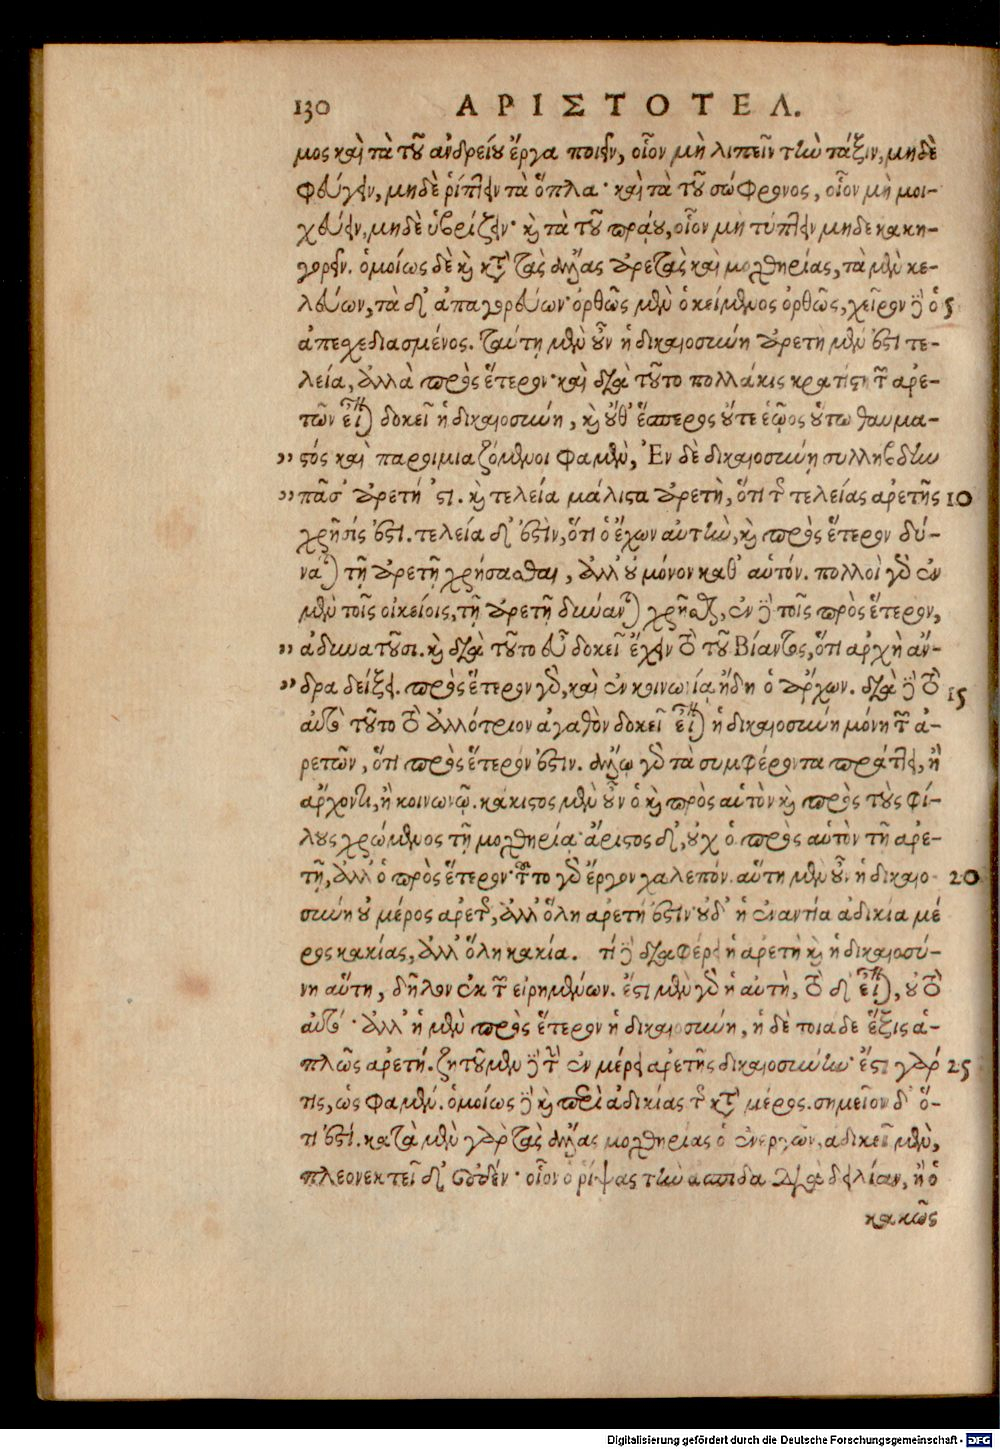 130 ΑΡΙΣΤΟΤΕΛ.
μος καὶ τὰ τοῦ ἀνδρείου ἔργα ποιεῖν, οἷον μὴ λιπεῖν τὴν τάξιν, μηδὲ
φεύγειν, μηδὲ ῥίπτειν τὰ ὅπλα· καὶ τὰ τοῦ σώφρονος, οἷον μὴ μοι-
χεύειν, μηδὲ ὑβρίζειν· καὶ τὰ τοῦ πράου, οἷον μὴ τύπτειν μηδὲ κακη-
γορεῖν. ὁμοίως δὲ καὶ κατὰ τὰς ἄλλας ἀρετὰς καὶ μοχθηρίας, τὰ μὲν κε-
λεύων, τὰ δ' ἀπαγορεύων· ὀρθῶς μὲν ὁ κείμενος ὀρθῶς, χεῖρον δὲ ὁ 5
ἀπεσχεδιασμένος. ταύτη μὲν οὖν ἡ δικαιοσύνη ἀρετὴ μέν ἐστι τε-
λεία, ἀλλὰ πρὸς ἕτερον· καὶ διὰ τοῦτο πολλάκις κρατίστη τῶν ἀρε-
τῶν εἶναι δοκεῖ ἡ δικαιοσύνη, καὶ οὔθ' ἕσπερος οὔτε ἑῷος οὕτω θαυμα-
„ στός καὶ παροιμιαζόμενοι φαμὲν, Ἐν δὲ δικαιοσύνῃ συλλήβδην
„ πᾶσ' ἀρετή 'στι. καὶ τελεία μάλιστα ἀρετὴ, ὅτι τῆς τελείας ἀρετῆς 10
χρῆσίς ἐστι. τελεία δ' ἐστὶν, ὅτι ὁ ἔχων αὐτὴν, καὶ πρὸς ἕτερον δύ-
ναται τῇ ἀρετῇ χρῆσασθαι, ἀλλ' οὐ μόνον καθ' αὑτόν. πολλοὶ γὰρ ἐν
μὲν τοῖς οἰκείοις, τῇ ἀρετῇ δύνανται χρῆσθαι, ἐν δὲ τοῖς πρὸς ἕτερον,
„ ἀδυνατοῦσι. καὶ διὰ τοῦτο εὖ δοκεῖ ἔχειν τὸ τοῦ Βίαντος, ὅτι ἀρχὴ ἄν-
„ δρα δείξει. πρὸς ἕτερον γὰρ, καὶ ἐν κοινωνίᾳ ἤδη ὁ ἄρχων. διὰ δὲ τὸ 15
αὐτὸ τοῦτο τὸ ἀλλότριον ἀγαθὸν δοκεῖ εἶναι ἡ δικαιοσύνη μόνη τῶν ἀ-
ρετῶν, ὅτι πρὸς ἕτερόν ἐστιν. ἄλλῳ γὰρ τὰ συμφέροντα πράττει, ἢ
ἄρχοντι, ἢ κοινωνῷ. κάκιστος μὲν οὖν ὁ καὶ πρὸς αὑτὸν καὶ πρὸς τοὺς φί-
λους χρώμενος τῇ μοχθηρίᾳ· ἄριστος δ', οὐχ ὁ πρὸς αὑτὸν τῇ ἀρε-
τῇ, ἀλλ' ὁ πρὸς ἕτερον· τοῦτο γὰρ ἔργον χαλεπόν. αὕτη μὲν οὖν ἡ δικαιο- 20
σύνη οὐ μέρος ἀρετῆς, ἀλλ' ὅλη ἀρετή ἐστιν· οὐδ' ἡ ἐναντία ἀδικία μέ
ρος κακίας, ἀλλ' ὅλη κακία. τί δὲ διαφέρει ἡ ἀρετὴ καὶ ἡ δικαιοσύ-
νη αὕτη, δῆλον ἐκ τῶν εἰρημένων. ἔστι μὲν γὰρ ἡ αὐτὴ, τὸ δ' εἶναι, οὐ τὸ
αὐτό· ἀλλ' ἡ μὲν πρὸς ἕτερον ἡ δικαιοσύνη, ἡ δὲ τοιάδε ἕξις ἁ-
πλῶς ἀρετή. ζητοῦμεν δὲ τὴν ἐν μέρει ἀρετῆς δικαιοσύνην· ἔστι γάρ 25
τις, ὡς φαμέν. ὁμοίως δὲ καὶ περὶ ἀδικίας τῆς κατὰ μέρος. σημεῖον δ' ὅ-
τι ἐστί. κατὰ μὲν γὰρ τὰς ἄλλας μοχθηρίας ὁ ἐνεργῶν, ἀδικεῖ μὲν,
πλεονεκτεῖ δ' οὐδέν· οἷον ὁ ῥίψας τὴν ἀσπίδα διὰ δειλίαν, ἢ ὁ
κακῶς
Digitalisierung gefördert durch die Deutsche Forschungsgemeinschaft - DFG